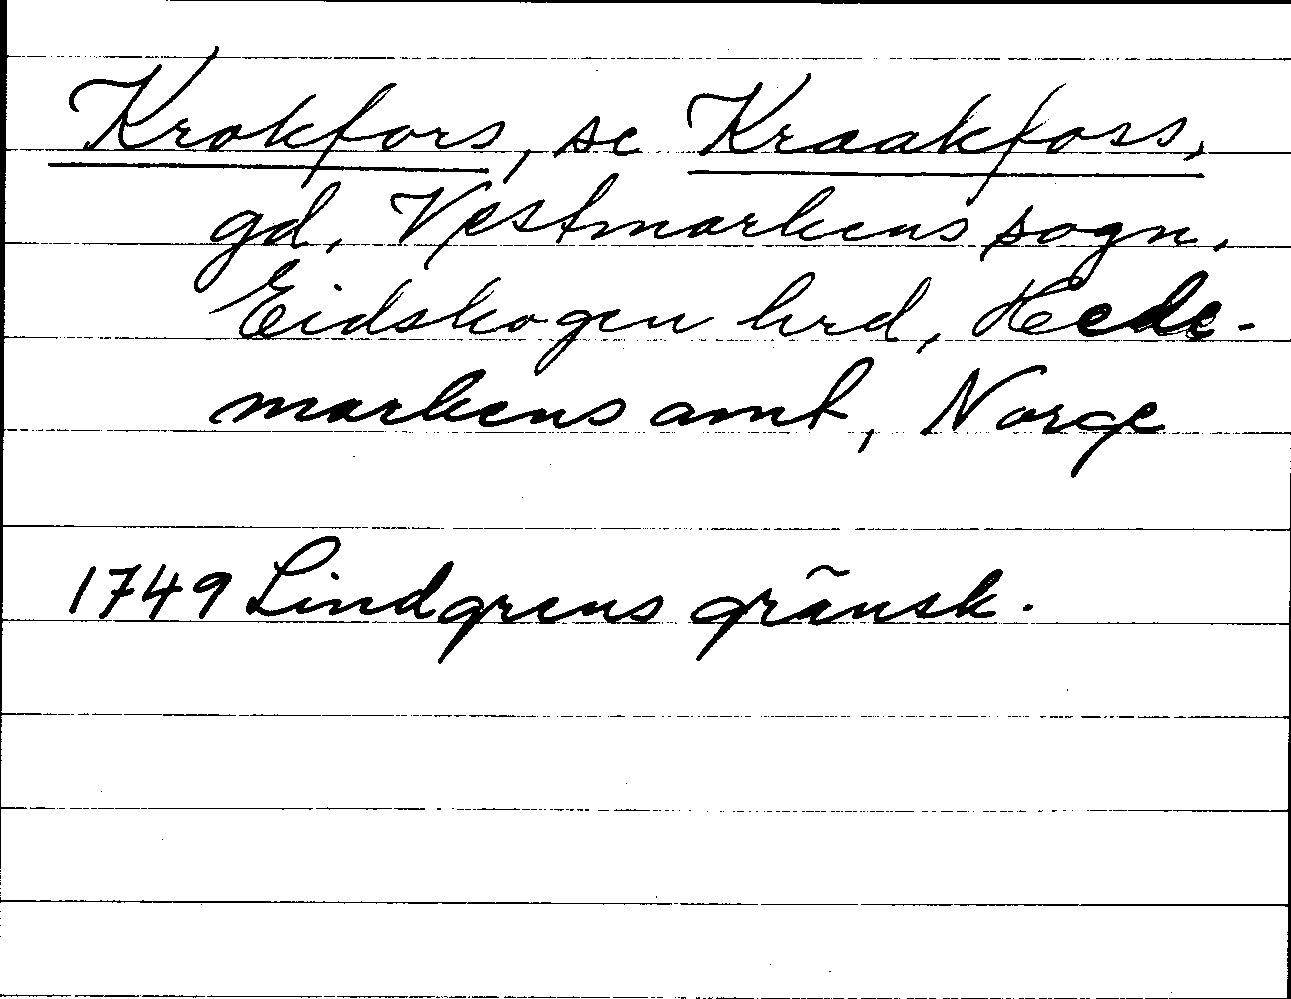 Krokfors, se Kraakfoss,
gd, Vestmarkens sogn,
Eidskogen hrd, Hede-
markens amt, Norge
1749 Lindgrens gränsk.